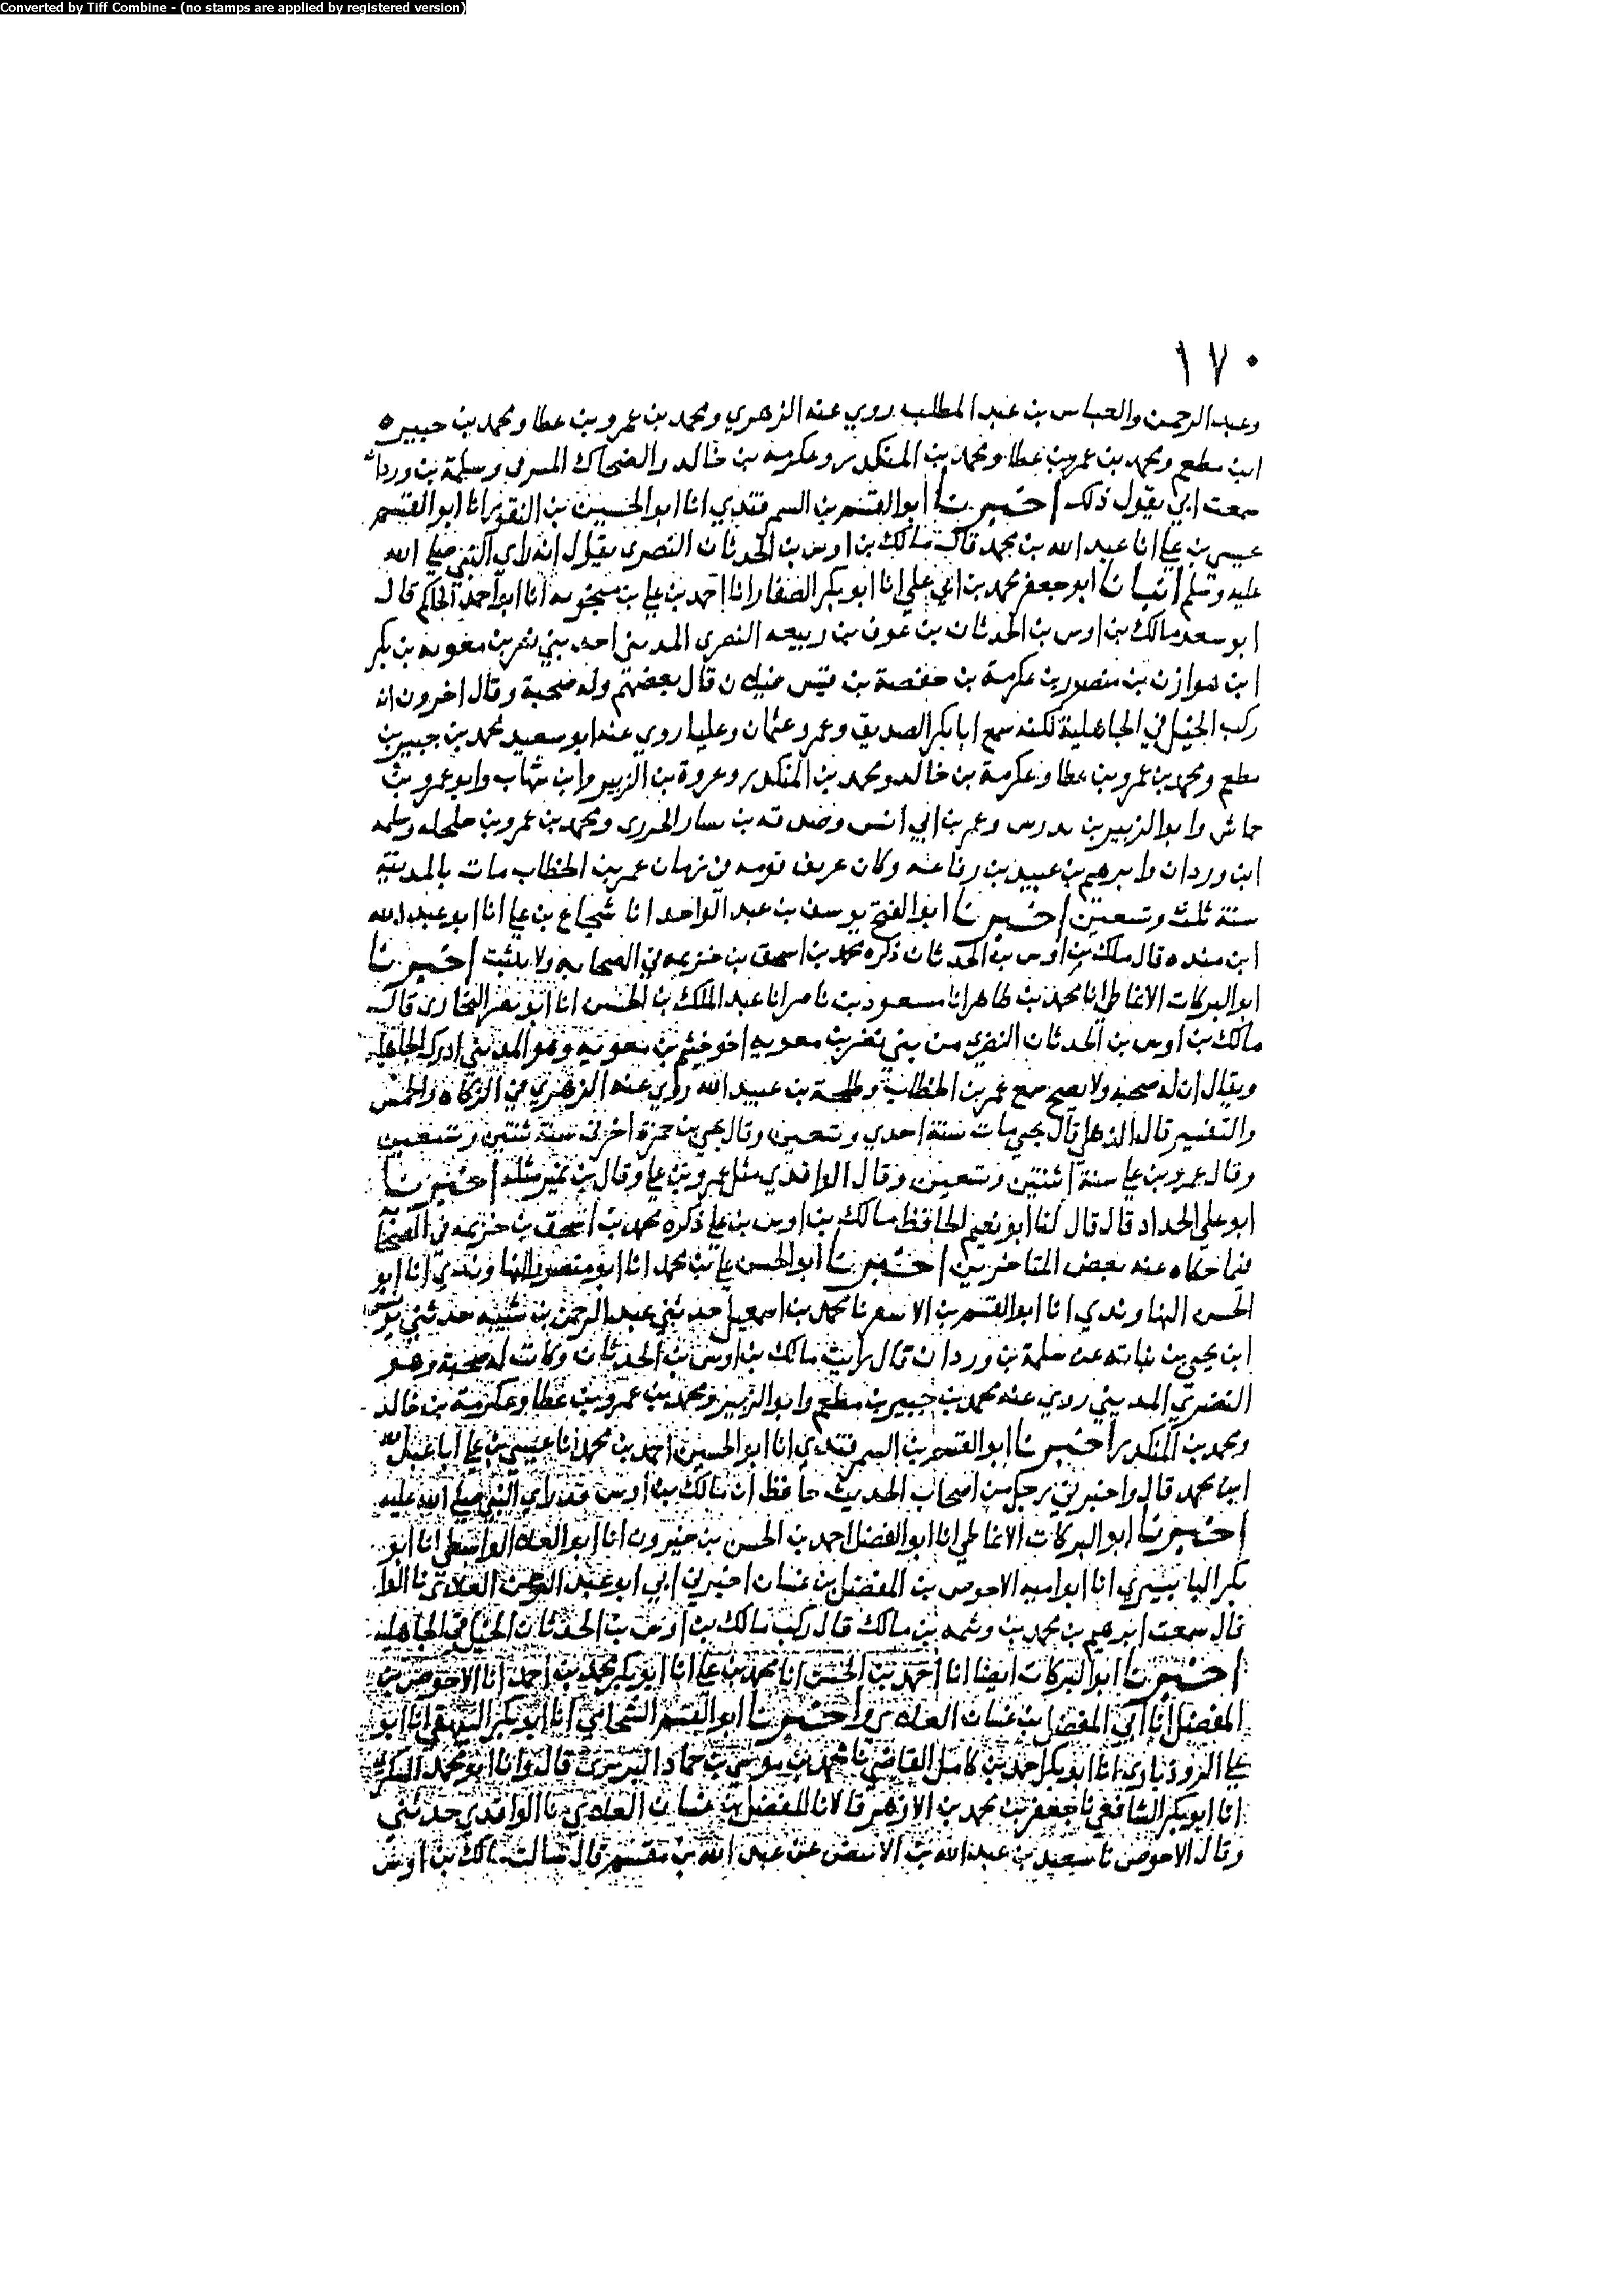 Converted by Tiff Combine - (no stamps are applied by registered version)
١٧٠
وعبد الرحمن والعباس بن عبد المطلب روي عنه الزهري ومحمد بن عمرو بن عطا ومحمد بن جبير
ابن مطعم ومحمد بن عمرو بن عطا ومحمد بن المنكدر وعكرمة بن خالد والضحاك المسرفي وسلمة بن وردان
سمعت ابي يقول ذلك اخبرنا ابو القسم بن السمرقندي انا ابو الحسين بن النقور انا ابو القسم
عيسى بن علي انا عبد الله بن محمد قال مالك بن اوس بن الحدثان النصري يقول انه راى النبي صلى الله
عليه وسلم انبانا ابو جعفر محمد بن ابي علي انا ابو بكر الصفار انا احمد بن علي بن منجويه انا ابو احمد الحاكم قال
ابو سعد مالك بن اوس بن الحدثان بن عوف بن ربيعه النصرى المديني احد بني نصر بن معويه بن بكر
ابن هوازن بن منصور بن عكرمة بن خفصة بن قيس عيلان قال بعضهم وله صحبة وقال اخرون انه
ركب الخيل في الجاهلية لكنه سمع ابا بكر الصديق وعمر وعثمان وعليا روي عنه ابو سعيد محمد بن جبير بن
مطعم ومحمد بن عمرو بن عطا وعكرمة بن خالد ومحمد بن المنكدر وعروة بن الزبير وابن شهاب وابو عمرو بن
حماش وابو الزبير بن مدرس وعمر بن ابي انس وصدقه بن يسار الجزري ومحمد بن عمرو بن حلحله وسلمه
ابن وردان وابرهيم بن عبيد بن رفاعه وكان عريف قومه في زمان عمر بن الخطاب مات بالمدينة
سنة ثلث وتسعين اخبرنا ابو الفتح يوسف بن عبد الواحد انا شجاع بن علي انا ابو عبد الله
ابن منده قال ملك بن اوس بن الحدثان ذكره محمد بن اسحق بن خزيمه في الصحابه ولا يثبت اخبرنا
ابو البركات الانماطي انا محمد بن طاهر انا مسعود بن ناصر انا عبد الملك بن الحسن انا ابو نصر البخاري قال
مالك بن اوس بن الحدثان النصري من بني نصر بن معويه اخو خيثم بن معويه وهو المديني ادرك الجاهلية
ويقال ان له صحبه ولا يصح سمع عمر بن الخطاب وطلحة بن عبيد الله روي عنه الزهري في الزكاه والخمس
والتفسير قال الذهلي قال يحيى مات سنة احدي وتسعين وقال يحيى بن حمزة اخرني سنة ثنتين وتسعين
وقال عمرو بن علي سنة اثنتين وتسعين وقال الواقدي مثل عمرو بن علي وقال بن نمير مثله اخبرنا
ابو علي الحداد قال قال لنا ابو نعيم الحافظ مالك بن اوس بن علي ذكره محمد بن اسحق بن خزيمه في الصحابة
فيما حكاه عنه بعض المتاخرين اخبرنا ابو الحسن علي بن محمد انا ابو منصور النهاوندي انا ابو
الحسن النهاوندي انا ابو القسم بن الاسقر نا محمد بن اسمعيل حدثني عبد الرحمن بن شيبه حدثني يونس
ابن يحيى بن نباته عن سلمة بن وردان قال رايت مالك بن اوس بن الحدثان وكانت له صحبة وهو
النصري المديني روي عنه محمد بن جبير بن مطعم وابو الزبير ومحمد بن عمرو بن عطا وعكرمة بن خالد
ومحمد بن المنكدر اخبرنا ابو القسم بن السمرقندي انا ابو الحسين احمد بن محمد انا عيسى بن علي انا عبد الله
ابن محمد قال واخبرني رجل من اصحاب الحديث حافظ ان مالك بن اوس قد راي النبي صلى الله عليه
اخبرنا ابو البركات الانماطي انا ابو الفضل احمد بن الحسن بن خيرون انا ابو العلا الواسطي انا ابو
بكر البابسيري انا ابو اميه الاحوص بن المفضل بن غسان اخبرني ابي ابو عبد الرحمن الغلابي نا الوا
قال سمعت ابرهيم بن محمد بن وثمه بن مالك قال ركب مالك بن اوس بن الحدثان الخيل في الجاهليه
اخبرنا ابو البركات ايضا انا احمد بن الحسن انا محمد بن علي انا ابو بكر محمد بن احمد انا الاحوص بن
المفضل انا ابي المفضل بن غسان الغلابي واخبرنا ابو القسم الشحامي انا ابو بكر البيهقي انا ابو
علي الروذباري انا ابو بكر احمد بن كامل القاضي نا محمد بن موسى بن حماد البربري قال وانا ابو محمد السكري
انا ابو بكر الشافعي نا جعفر بن محمد بن الازهر قالا نا المفضل بن غسان الغلابي نا الواقدي حدثني
وقال الاحوص نا سعيد بن عبد الله بن الابيض عن عبد الله بن مقسم قال سالت مالك بن اوس